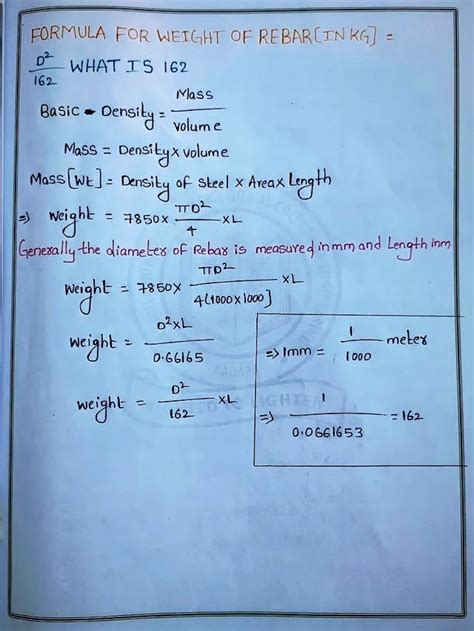 FORMULA FOR WEIGHT OF REBAR[IN KG] =
D²/162 WHAT IS 162
Basic - Density = Mass/volume
Mass = Density x volume
Mass[Wt] = Density of Steel x Area x Length
=> weight = 7850x πD²/4 xL
Generally the diameter of Rebar is measured in mm and Length in m
weight = 7850x πD²/4[1000x1000] xL
weight = D²xL/0.66165
weight = D²/162 xL
=> 1mm = 1/1000 meter
=> 1/0.0661653 = 162